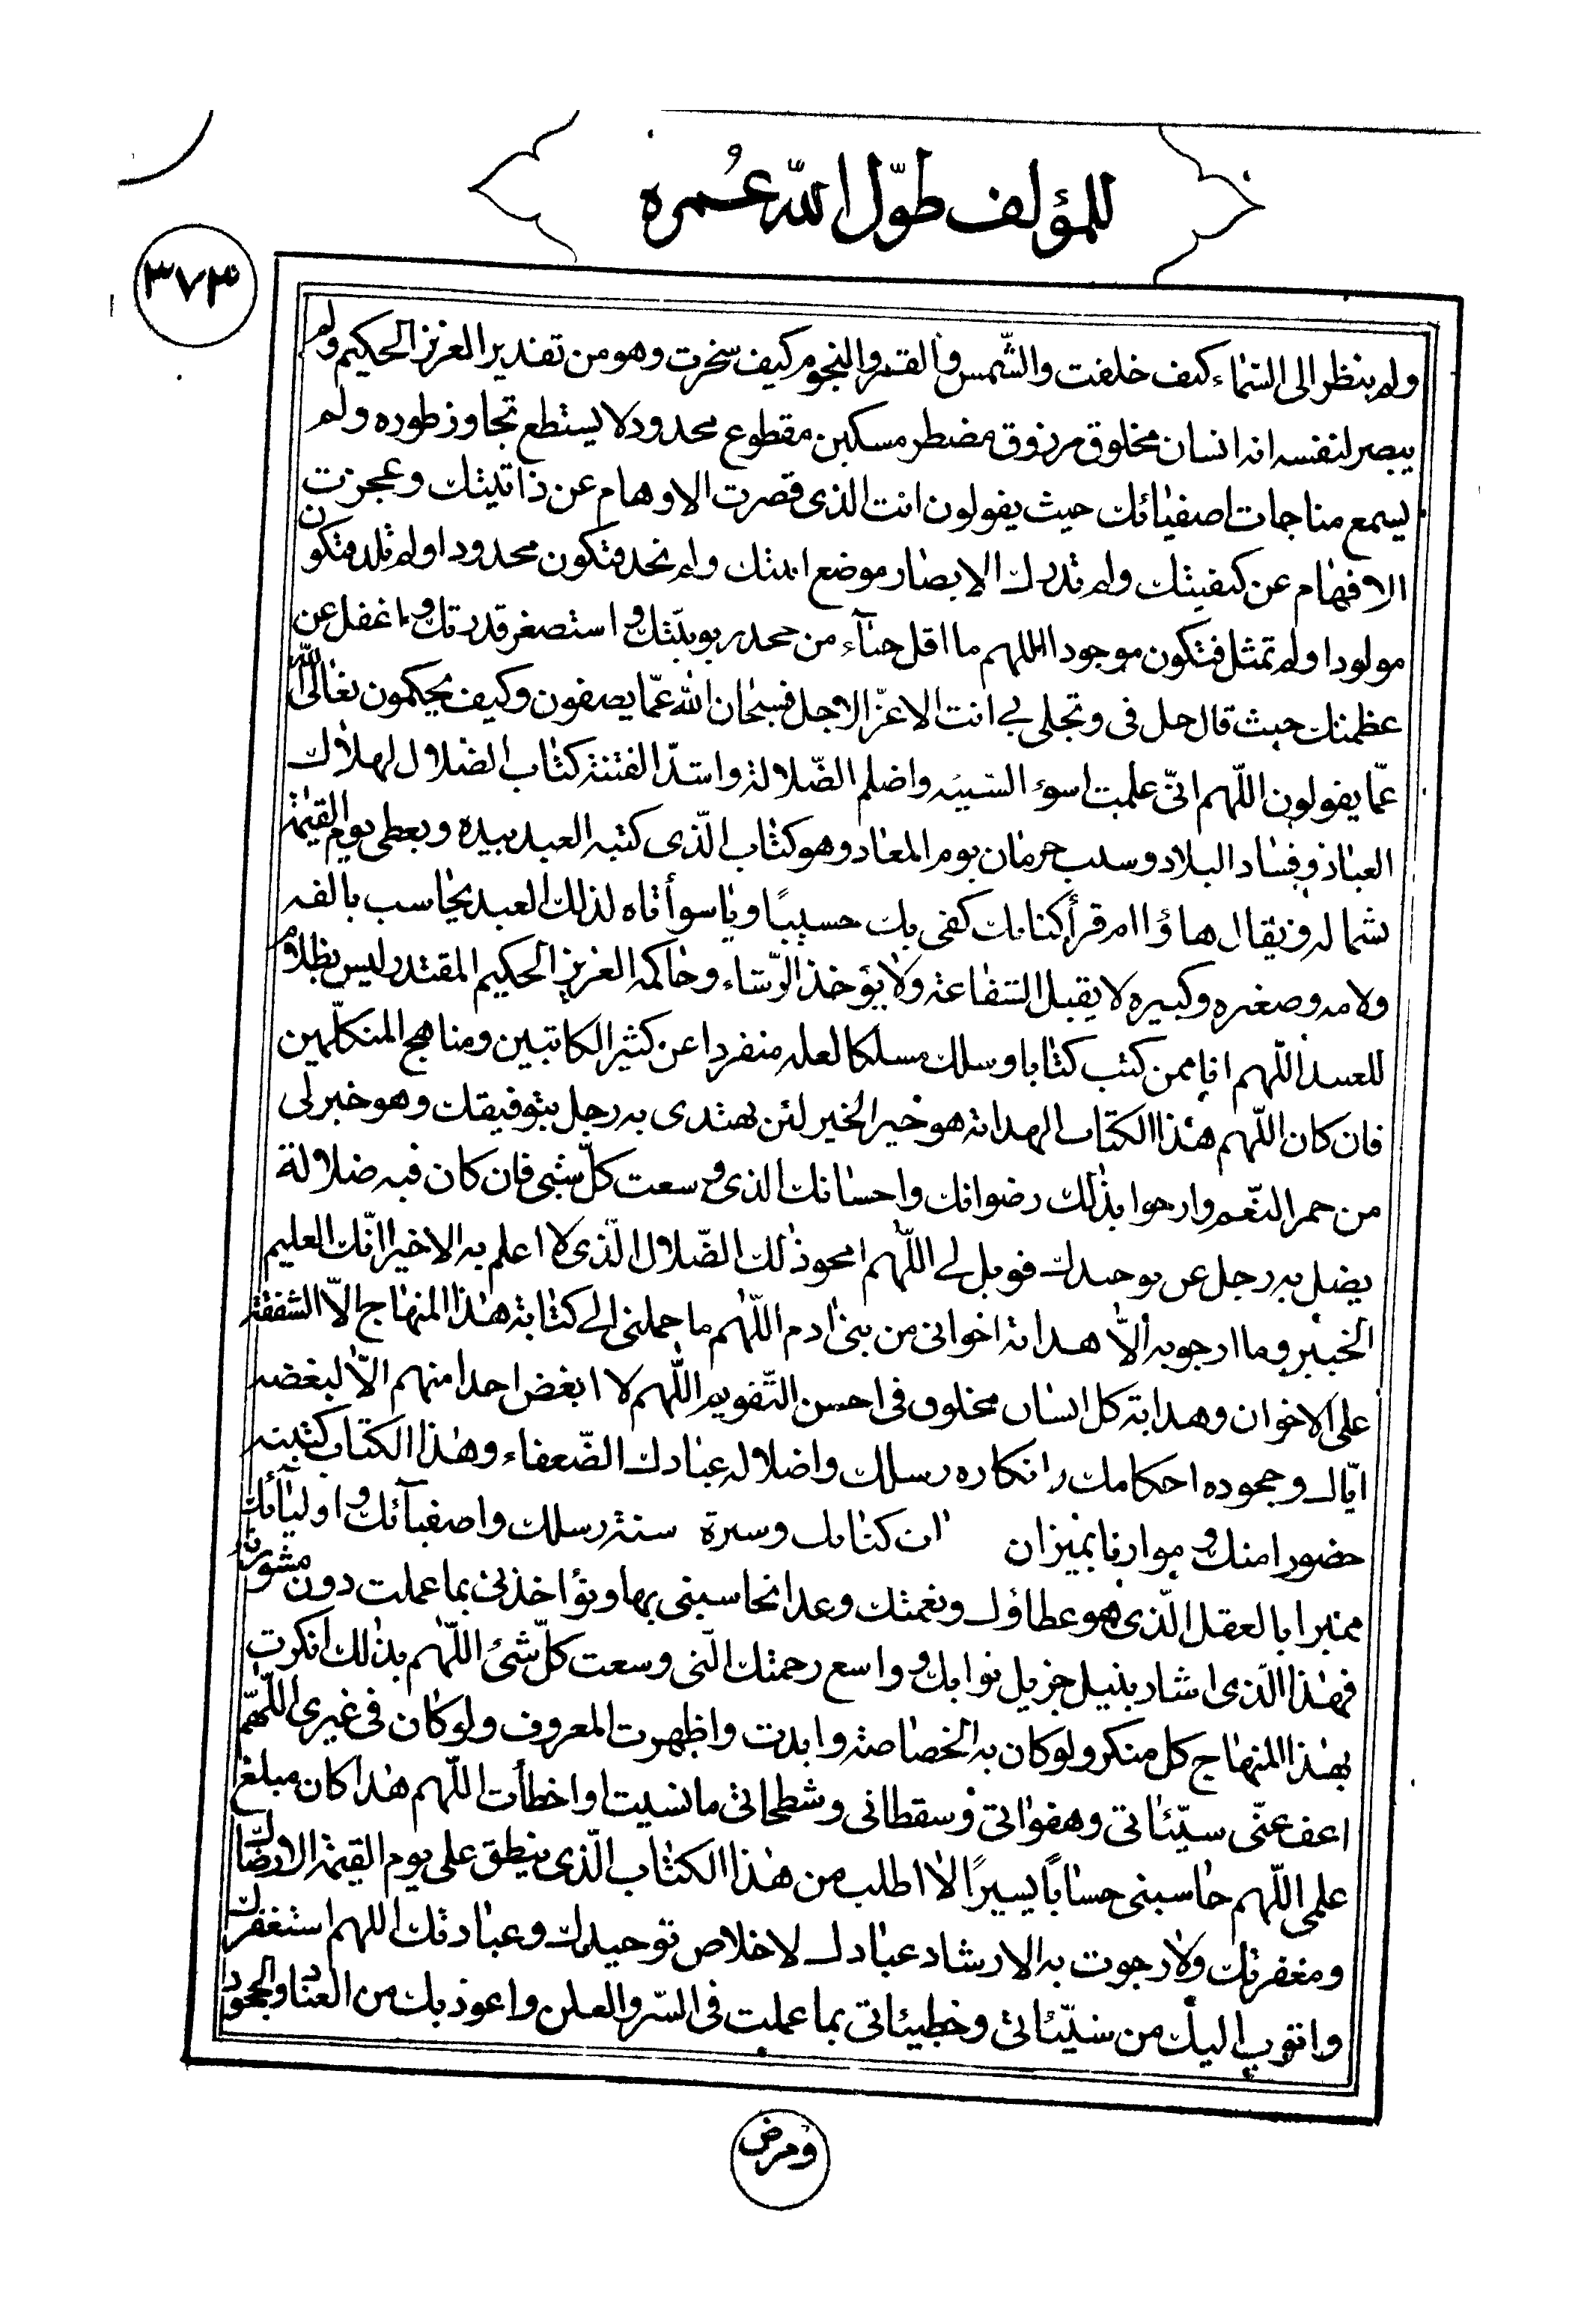 للمؤلف طوّل الله عُمره
٣٧٣
ولم ينظر الى السّماء كيف خلقت والشّمس والقمر والنجوم كيف سخرت وهو من تقدير العزيز الحكيم ولم
يبصر لنفسه انه انسان مخلوق مرزوق مضطر مسكين مقطوع محدود لا يستطع تجاوز طوره ولم
يسمع مناجات اصفيائك حيث يقولون انت الذى قصرت الاوهام عن ذاتيتك وعجزت
الافهام عن كيفيتك ولم تدرك الابصار موضع اينيتك ولم تحد فتكون محدودا ولم تلد فتكون
مولودا ولم تمثل فتكون موجودا اللهم ما اقل حياء من جحد ربوبيّتك واستصغر قدرتك وما غفل عن
عظمتك حيث قال حل فى وتجلى بى انت الاعزّ الاجل فسبحان الله عمّا يصفون وكيف يحكمون تعالى الله
عمّا يقولون اللّهم انّى علمت اسوء السّيئه واضلم الضّلالة واشدّ الفتنة كتاب الضلال لهلاك
العباد وفساد البلاد وسبب حرمان يوم المعاد وهو كتاب الّذى كتبه العبد بيده ويعطى يوم القيٰمة
بشماله ويقال هاؤا ام قرأ كتابك كفى بك حسيبًا ويا سوأتاه لذلك العبد يحاسب بالفه
ولامه وصغيره وكبيره لا يقبل الشفاعة ولا يؤخذ الرّشاء وحاكمه العزيز الحكيم المقتدر ليس بظلام
للعبيد اللّهم انا ممن كتب كتابا وسلك مسلكا لعله منفردا عن كثير الكاتبين ومناهج المتكلّمين
فان كان اللّهم هذا الكتاب الهداية هو خير الخير لئن يهتدى به رجل بتوفيقك وهو خير لى
من حمر النّعم وارجوا بذلك رضوانك واحسانك الذى وسعت كلّ شئ فان كان فيه ضلالة
يضل به رجل عن توحيدك فويل لى اللّهم امحو ذلك الضّلال الّذى لا اعلم به الا خيرا انّك العليم
الخبير وما ارجو به الّا هداية اخوانى من بنى ادم اللّهم ما حملنى الى كتابة هذا المنهاج الّا الشفقة
على الاخوان وهداية كل انسان مخلوق فى احسن التّقويم اللّهم لا ابغض احدا منهم الّا لبغضه
ايّاك وجحوده احكامك وانكاره رسلك واضلاله عبادك الضّعفاء وهذا الكتاب كتبته
حضورا منك وموازنا بميزان ان كتابك وسيرة سنة رسلك واصفيآئك واوليآئك
مميزا بالعقل الّذى هو عطاؤك ونعمتك وغدا تحاسبنى بها وتؤاخذنى بما عملت دون مشورته
فهذا الّذى اشاد بنيل جزيل ثوابك وواسع رحمتك الّتى وسعت كلّ شئ اللّهم بذلك انكرت
بهذا المنهاج كل منكر ولو كان به الخصاصة وابدت واظهرت المعروف ولو كان فى غيرى اللّهمّ
اعف عنّى سيّئاتى وهفواتى وسقطاتى وشطحاتى ما نسيت او اخطأت اللّهم هذا كان مبلغ
علمى اللّهم حاسبنى حسابًا يسيرًا لا اطلب من هذا الكتاب الّذى ينطق على يوم القيمة الا رضاك
ومغفرتك ولا رجوت به الا رشاد عبادك لاخلاص توحيدك وعبادتك اللهم استغفرك
واتوب اليك من سيّئاتى وخطيئاتى بما عملت فى السّر والعلن واعوذ بك من العناد والجحود
ومرض